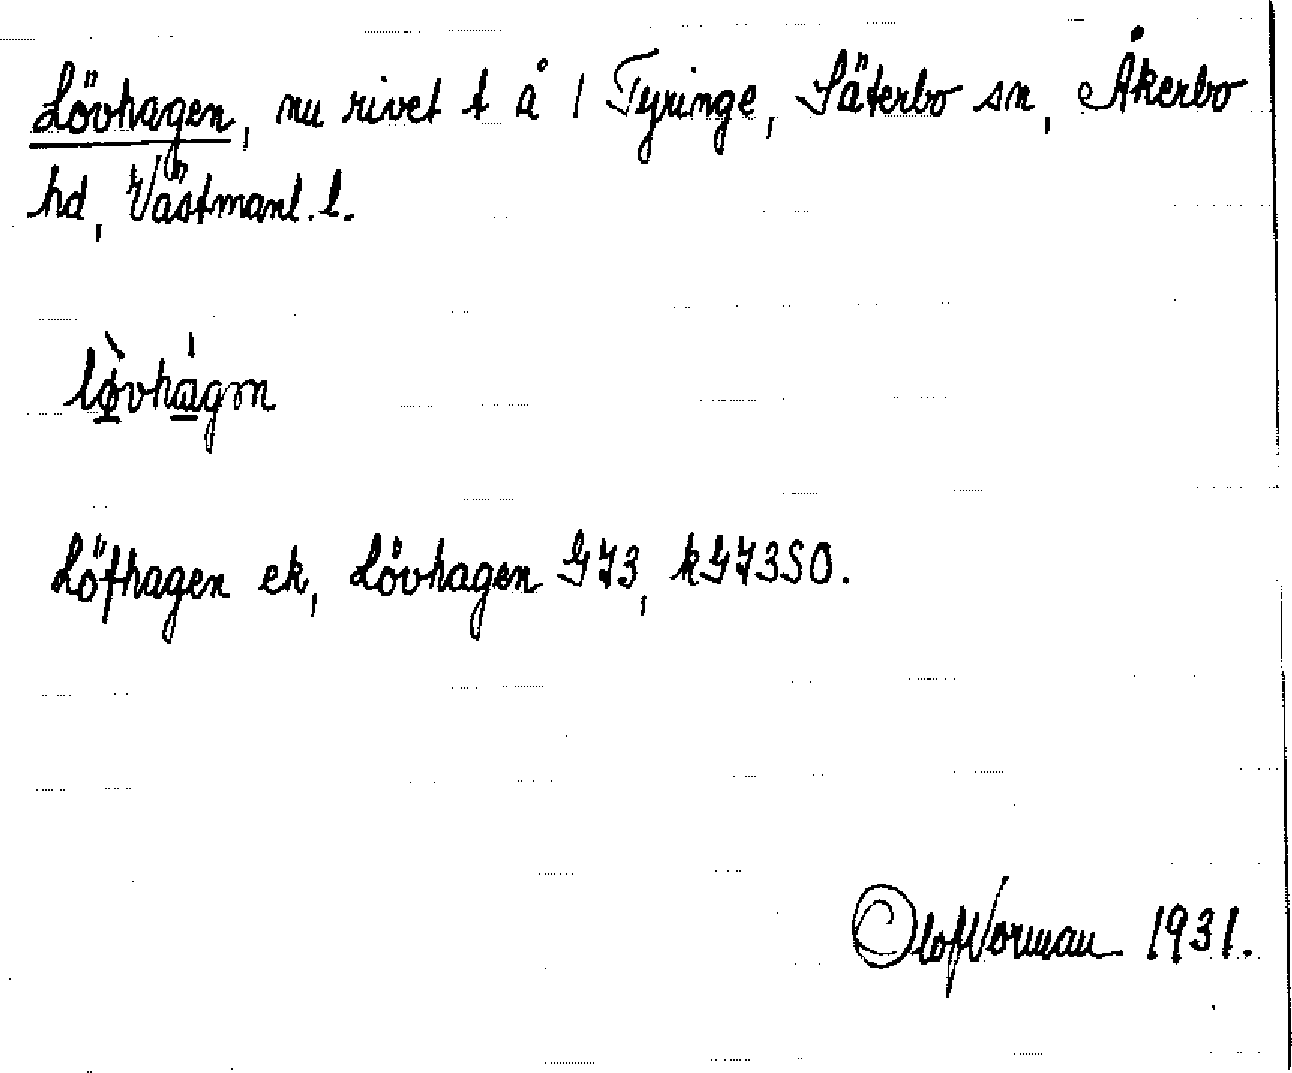 Lövhagen, nu rivet t å 1 Tyringe, Säterbo sn, Åkerbo
hd, Västmanl. l.
lø̀vhágm
Löfhagen ek, Lövhagen GJ3, kGJ3SO.
Olof Norman 1931.